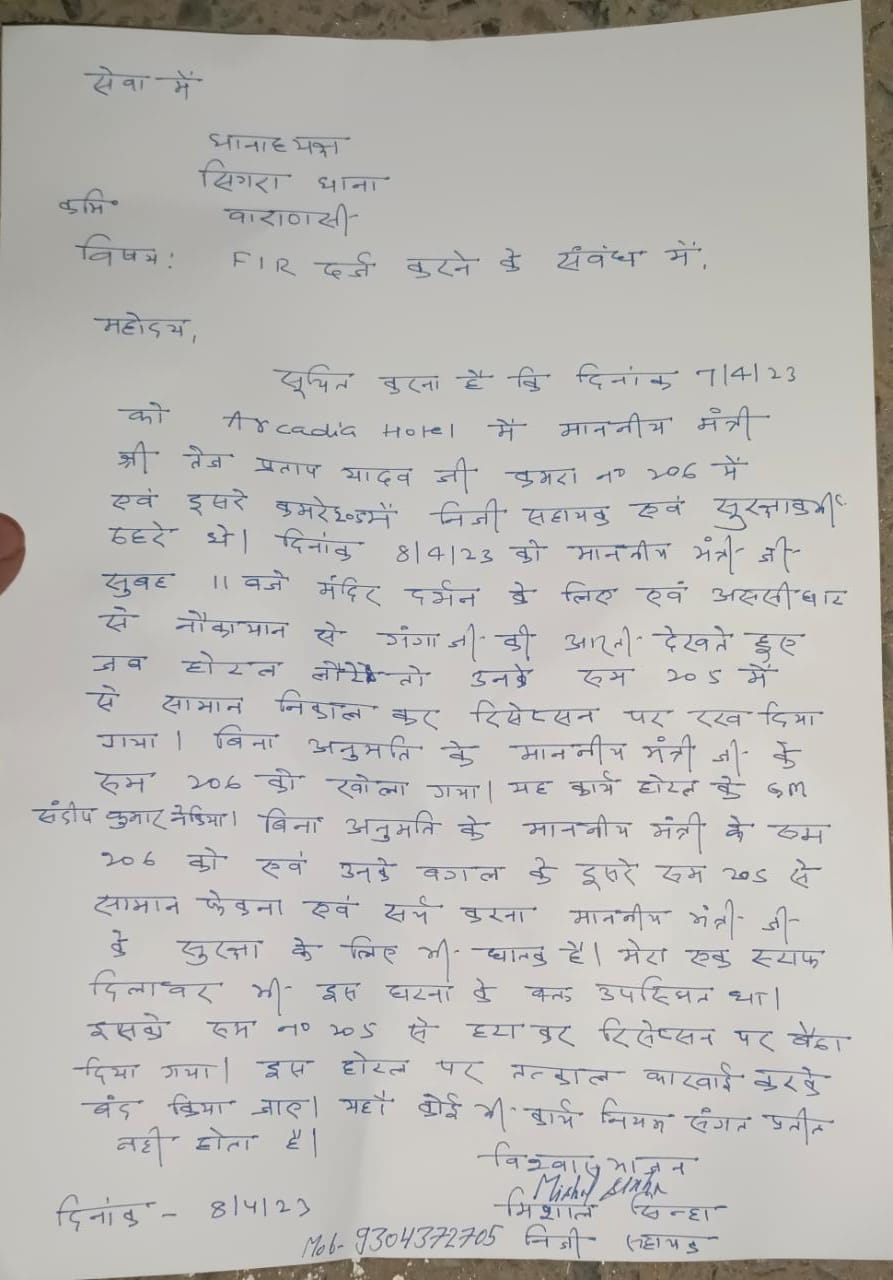 सेवा में
थानाध्यक्ष
सिगरा थाना
वाराणसी
विषय: FIR दर्ज करने के संबंध में,
महोदय,
सूचित करना है कि दिनांक 7/4/23
को Arcadia Hotel में माननीय मंत्री
श्री तेज प्रताप यादव जी कमरा न० 206 में
एवं दुसरे कमरे 205 में निजी सहायक एवं सुरक्षाकर्मी
ठहरे थे। दिनांक 8/4/23 को माननीय मंत्री जी
सुबह 11 वजे मंदिर दर्शन के लिए एवं अस्सीघाट
से नौकायान से गंगा जी की आरती देखते हुए
जब होटल लौटे तो उनके रूम 205 में
से सामान निकाल कर रिसेप्सन पर रख दिया
गया। बिना अनुमति के माननीय मंत्री जी के
रूम 206 को खोला गया। यह कार्य होटल के GM
संदीप कुमार बिना अनुमति के माननीय मंत्री के रूम
206 को एवं उनके बगल के दुसरे रूम 205 से
सामान फेकना एवं सर्च करना माननीय मंत्री जी
के सुरक्षा के लिए भी घातक है। मेरा एक स्टाफ
दिलावर भी इस घटना के वक्त उपस्थित था।
इसको रूम न० 205 से हटा कर रिसेप्सन पर बैठा
दिया गया। इस होटल पर तत्काल कारवाई करके
बंद किया जाए। यहाँ कोई भी कार्य नियम संगत प्रतीत
नही होता है।
विश्वास भाजन
मिशाल सिन्हा
निजी सहायक
दिनांक - 8/4/23
Mob- 9304372705